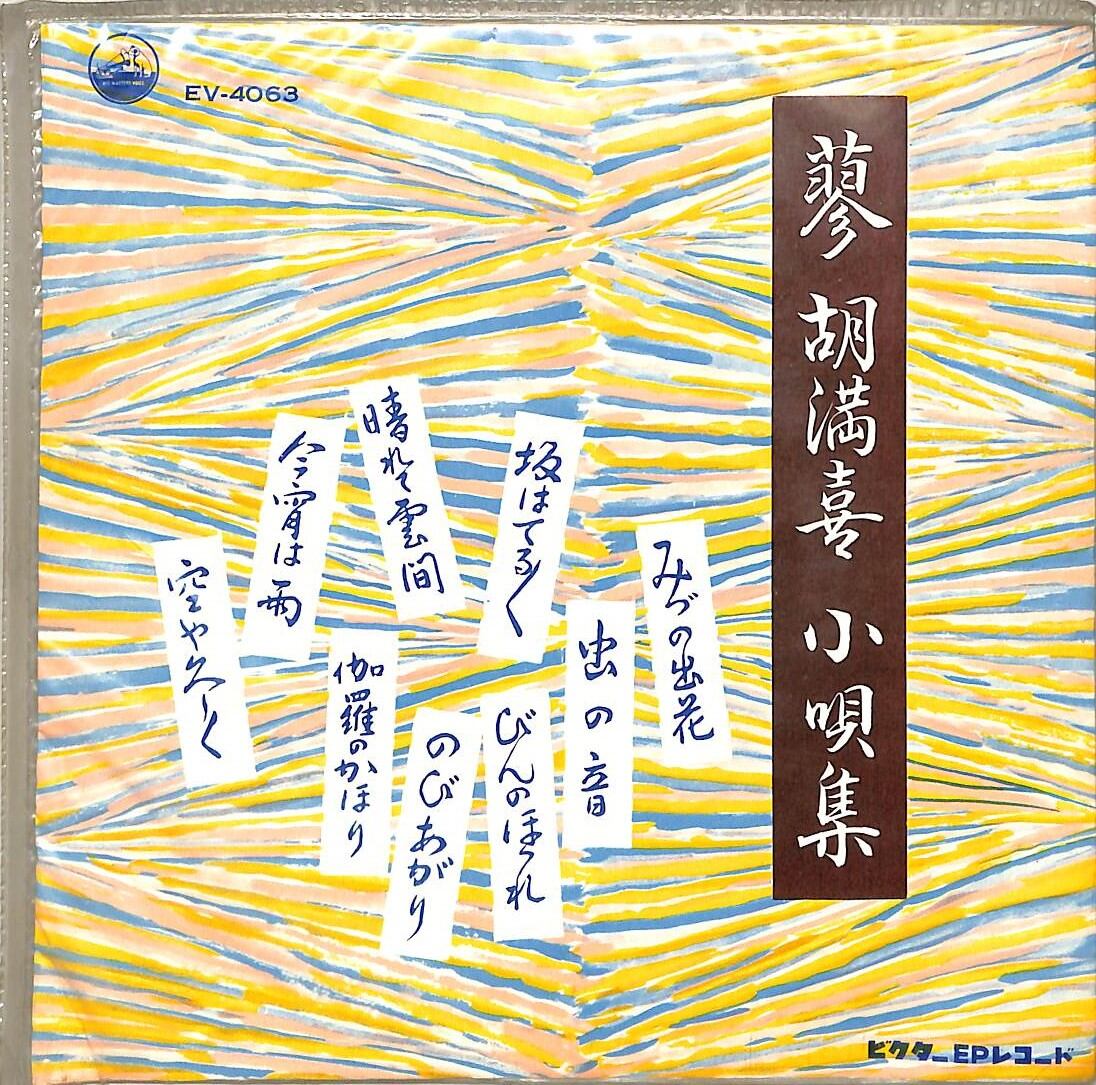 HIS MASTER'S VOICE
EV-4063
蓼 胡満喜 小唄集
みづの出花
虫の音
坂はてる〱
びんのほつれ
晴れて雲間
のびあがり
伽羅のかほり
今宵は雨
空や久しく
ビクターEPレコード